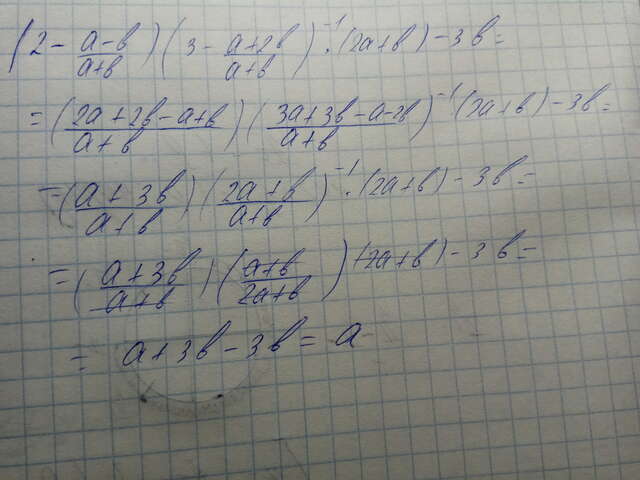 (2 - (a-b)/(a+b)) (3 - (a+2b)/(a+b))^-1 · (2a+b) - 3b =
= ((2a+2b-a+b)/(a+b)) ((3a+3b-a-2b)/(a+b))^-1 (2a+b) - 3b =
= ((a+3b)/(a+b)) ((2a+b)/(a+b))^-1 · (2a+b) - 3b =
= ((a+3b)/(a+b)) ((a+b)/(2a+b)) (2a+b) - 3b =
= a+3b-3b = a